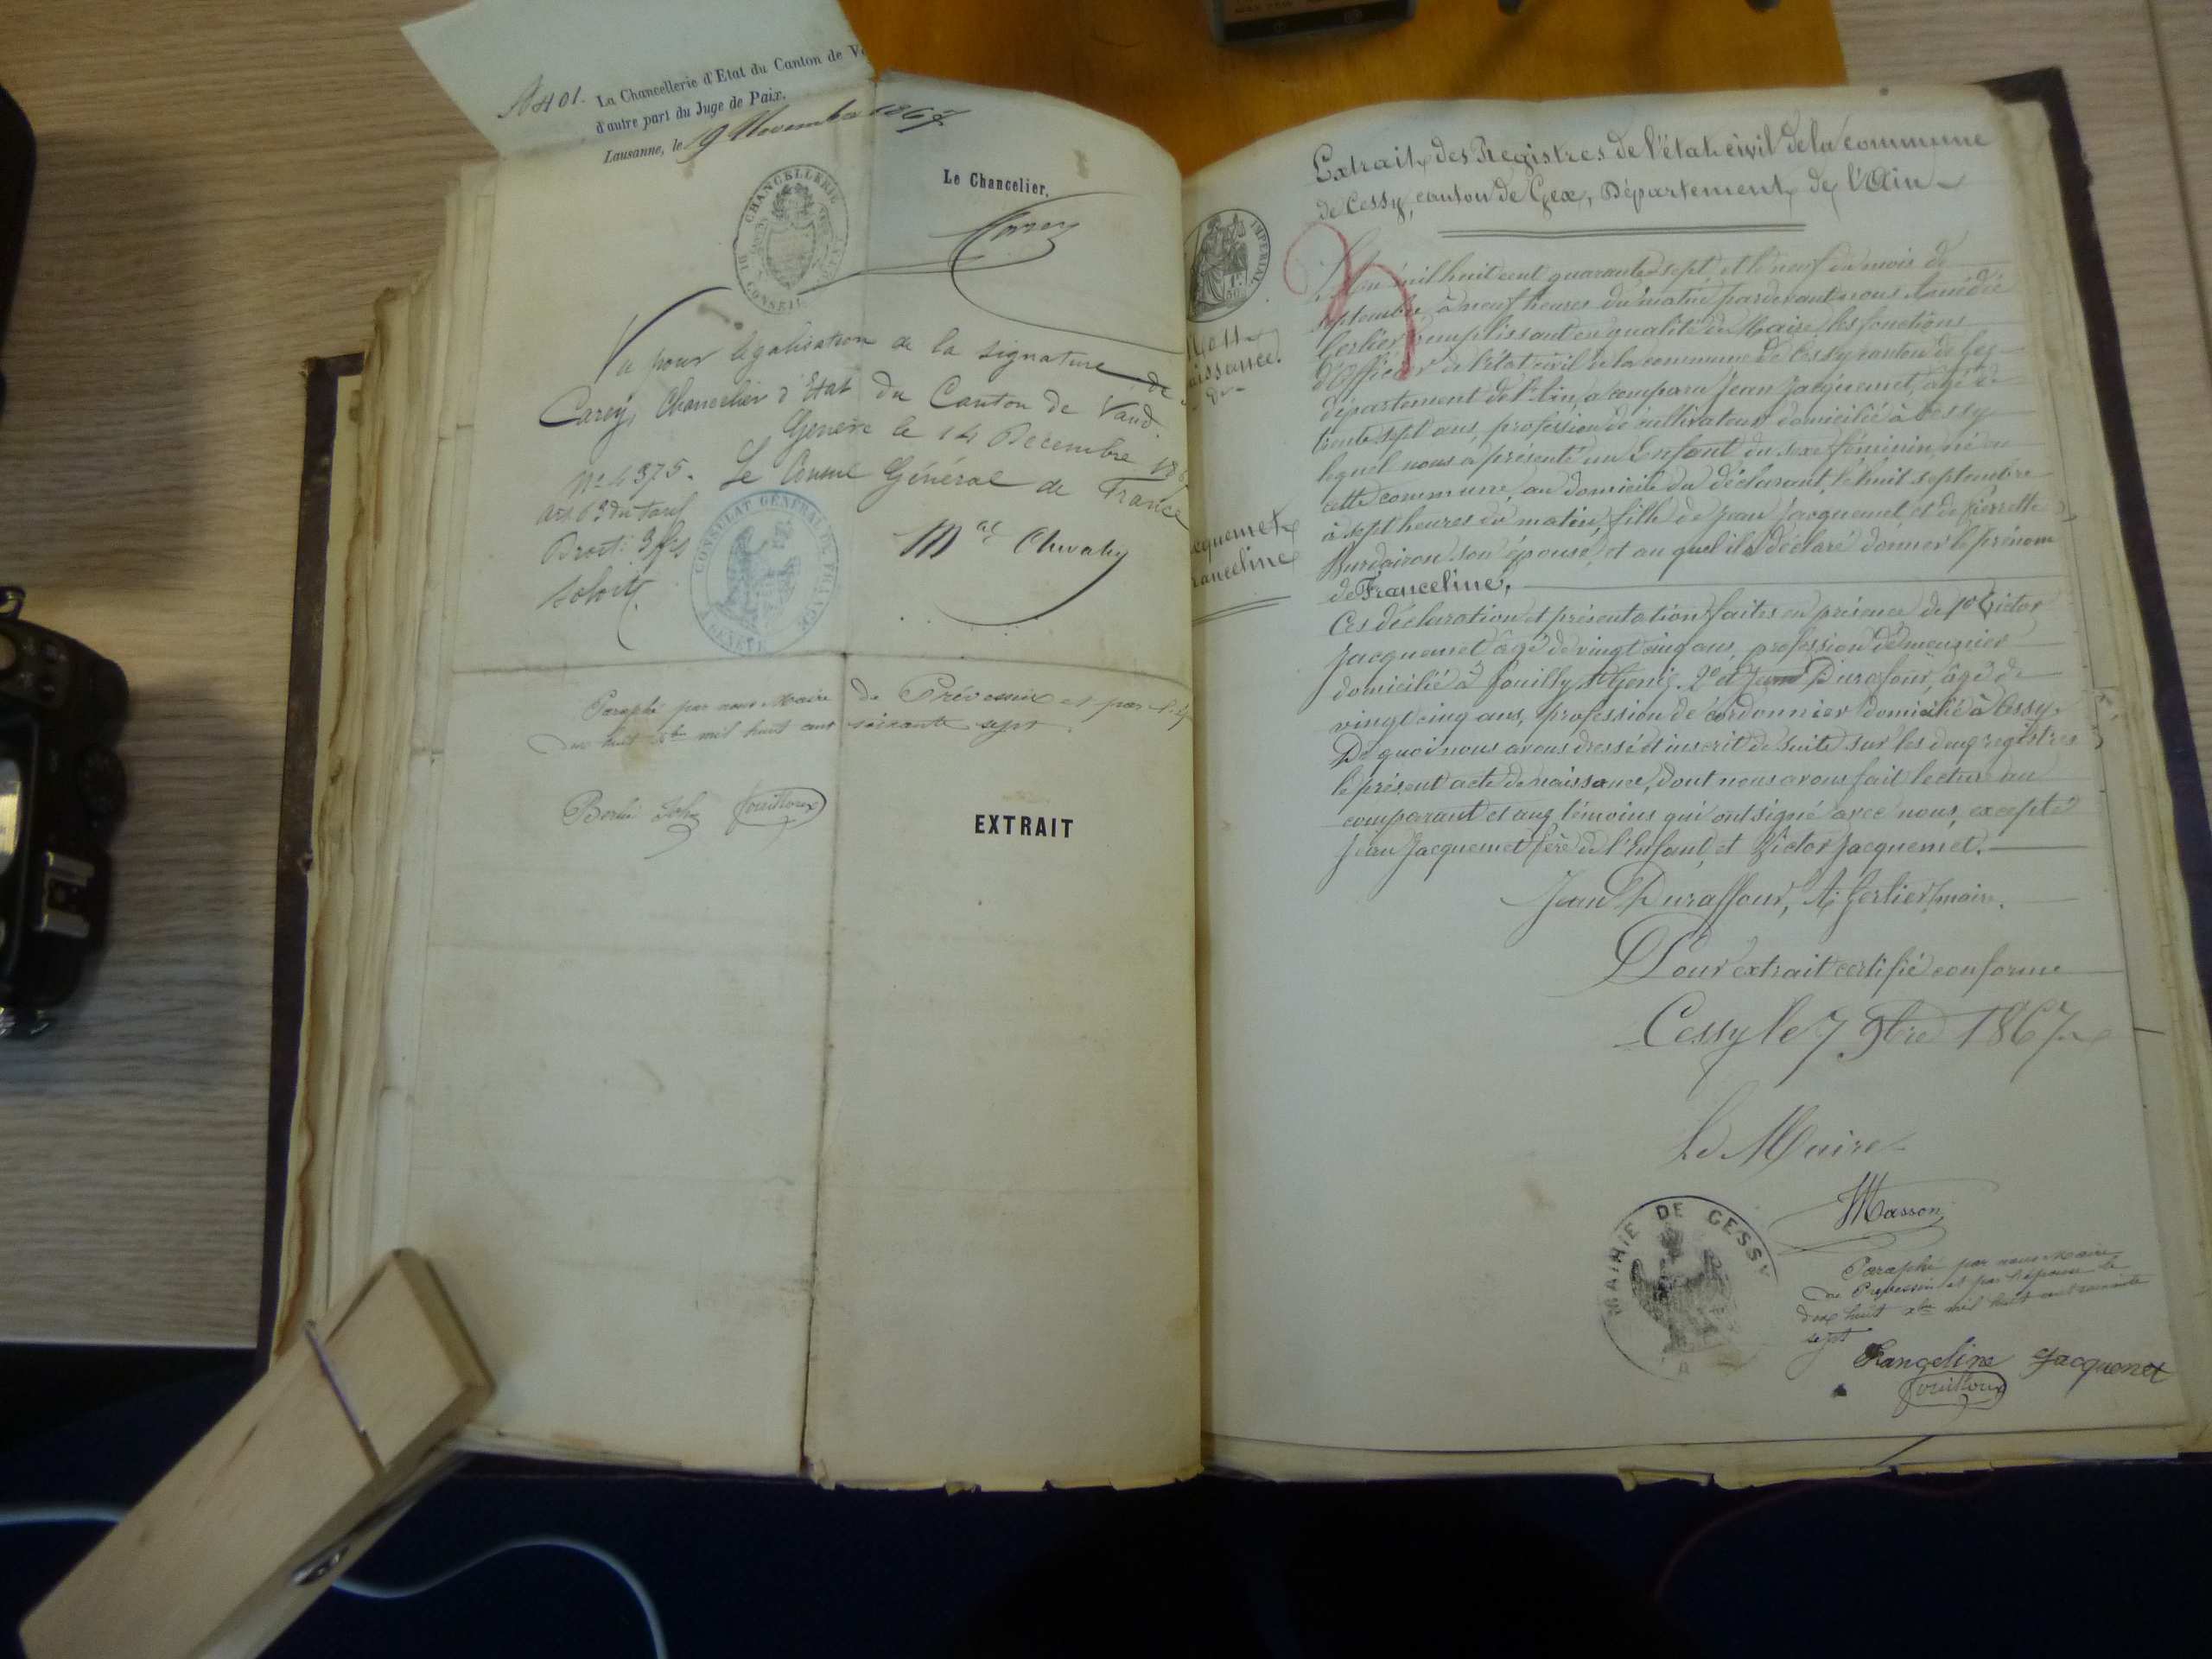 N 401. La Chancellerie d'Etat du Canton de V
d'autre part du Juge de Paix.
Lausanne, le 9 Novembre 1867.
Le Chancelier,
Carey
CHANCELLERIE
CONSEIL
Vu pour légalisation de la signature de
Carey, Chancelier d'Etat du Canton de Vaud.
Genève le 14 Décembre 186
No 4375. Le Consul Général de France
Art 63 du tarif
Mal Chevalley
CONSULAT GENERAL DE FRANCE
A GENEVE
Paraphé par nous Maire de Prévessin et par
dix huit xbre mil huit cent soixante sept
John Fouilloux
EXTRAIT
Extrait des Registres de l'état civil de la commune
de Cessy, canton de Gex, Département de l'Ain
IMPERIAL
aissance.
cquemet
ranceline
L'an mil huit cent quarante-sept, et le neuf du mois de
septembre, à neuf heures du matin, pardevant nous Amédée
Gerlier remplissant en qualité de Maire, les fonctions
d'Officier de l'état civil de la commune de Cessy canton de Gex
département de l'Ain, a comparu Jean Jacquemet, âgé de
trente sept ans, profession de cultivateur domicilié à Cessy
lequel nous a présenté un Enfant du sexe féminin, né en
cette commune, au domicile du déclarant, le huit septembre
à sept heures du matin, fille de Jean Jacquemet, et de Pierrette
Burdairon son épouse, et au quel il a déclaré donner le prénom
de Franceline,
Ces déclaration et présentation faites en présence de 1o Victor
Jacquemet âgé de vingt cinq ans, profession de meunier
domicilié à Pouilly St Genis. 2o et Jean Durafour, âgé de
vingt cinq ans, profession de cordonnier domicilié à Cessy.
De quoi nous avons dressé et inscrit de suite sur les deux registres
le présent acte de naissance, dont nous avons fait lecture au
comparant et aux témoins qui ont signé avec nous, excepté
Jean Jacquemet père de l'Enfant, et Victor Jacquemet.
Jean Duraffour, A. Gerlier, maire.
Pour extrait certifié conforme
Cessy le 7 9bre 1867
Le Maire
Masson
MAIRIE DE CESSY
Paraphé par nous Maire
de Prévessin et par l'épouse le
dix huit xbre mil huit cent soixante
sept
Frangeline Jacquemet
Fouilloux